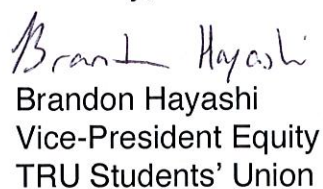 Brandon Hayashi
Brandon Hayashi
Vice-President Equity
TRU Students' Union